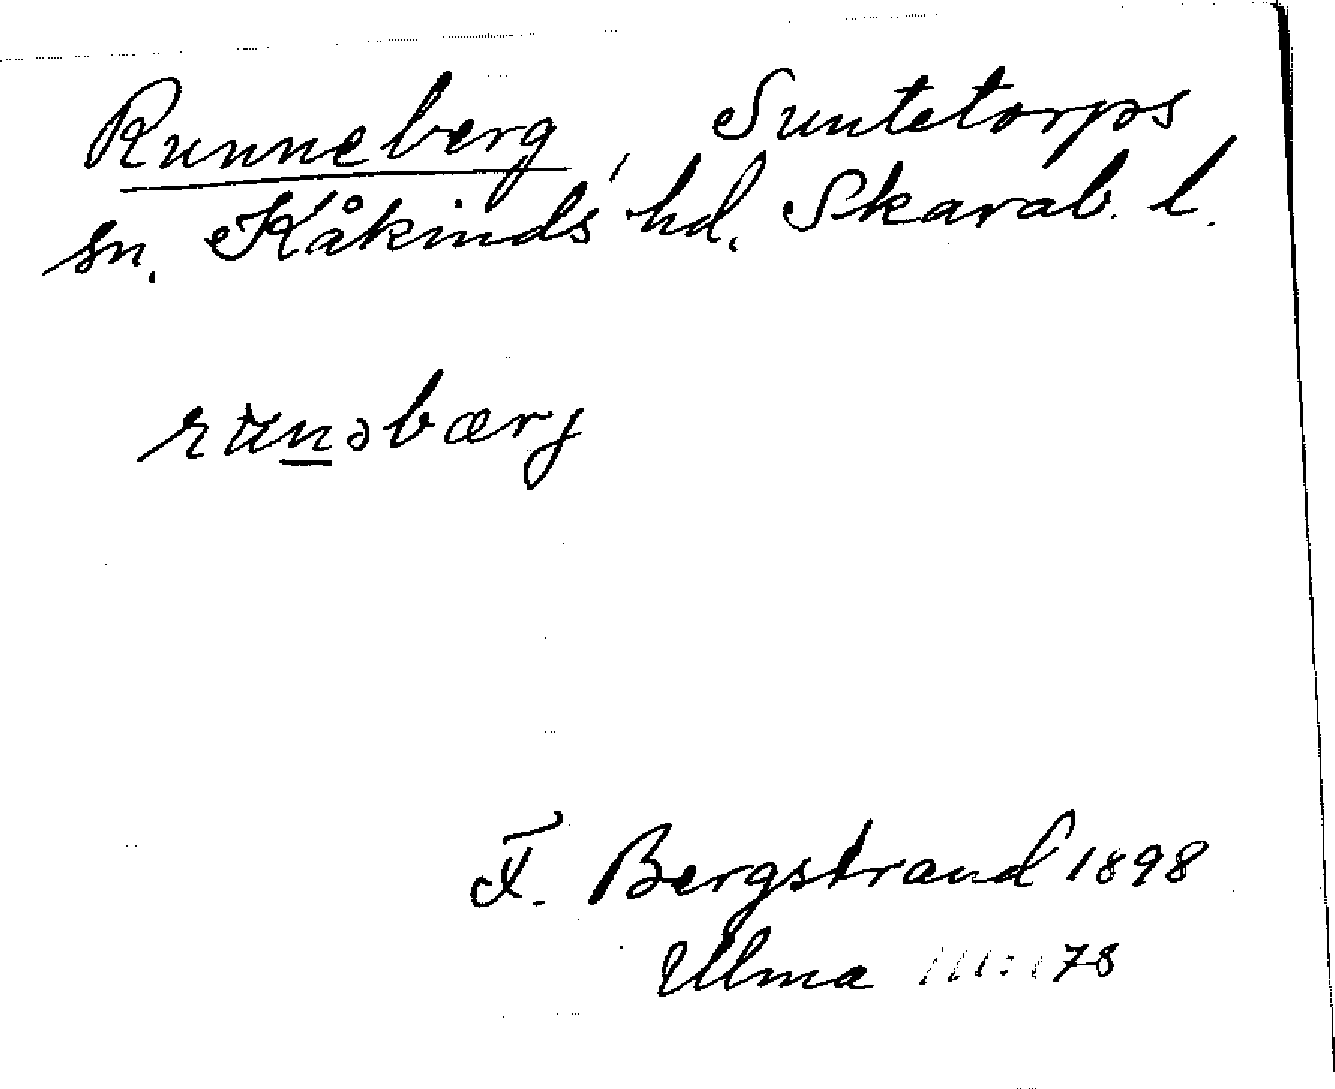 Runneberg, Suntetorps
sn. Kåkinds hd. Skarab. l.
runəbærj
F. Bergstrand 1898
Ulma 111:178